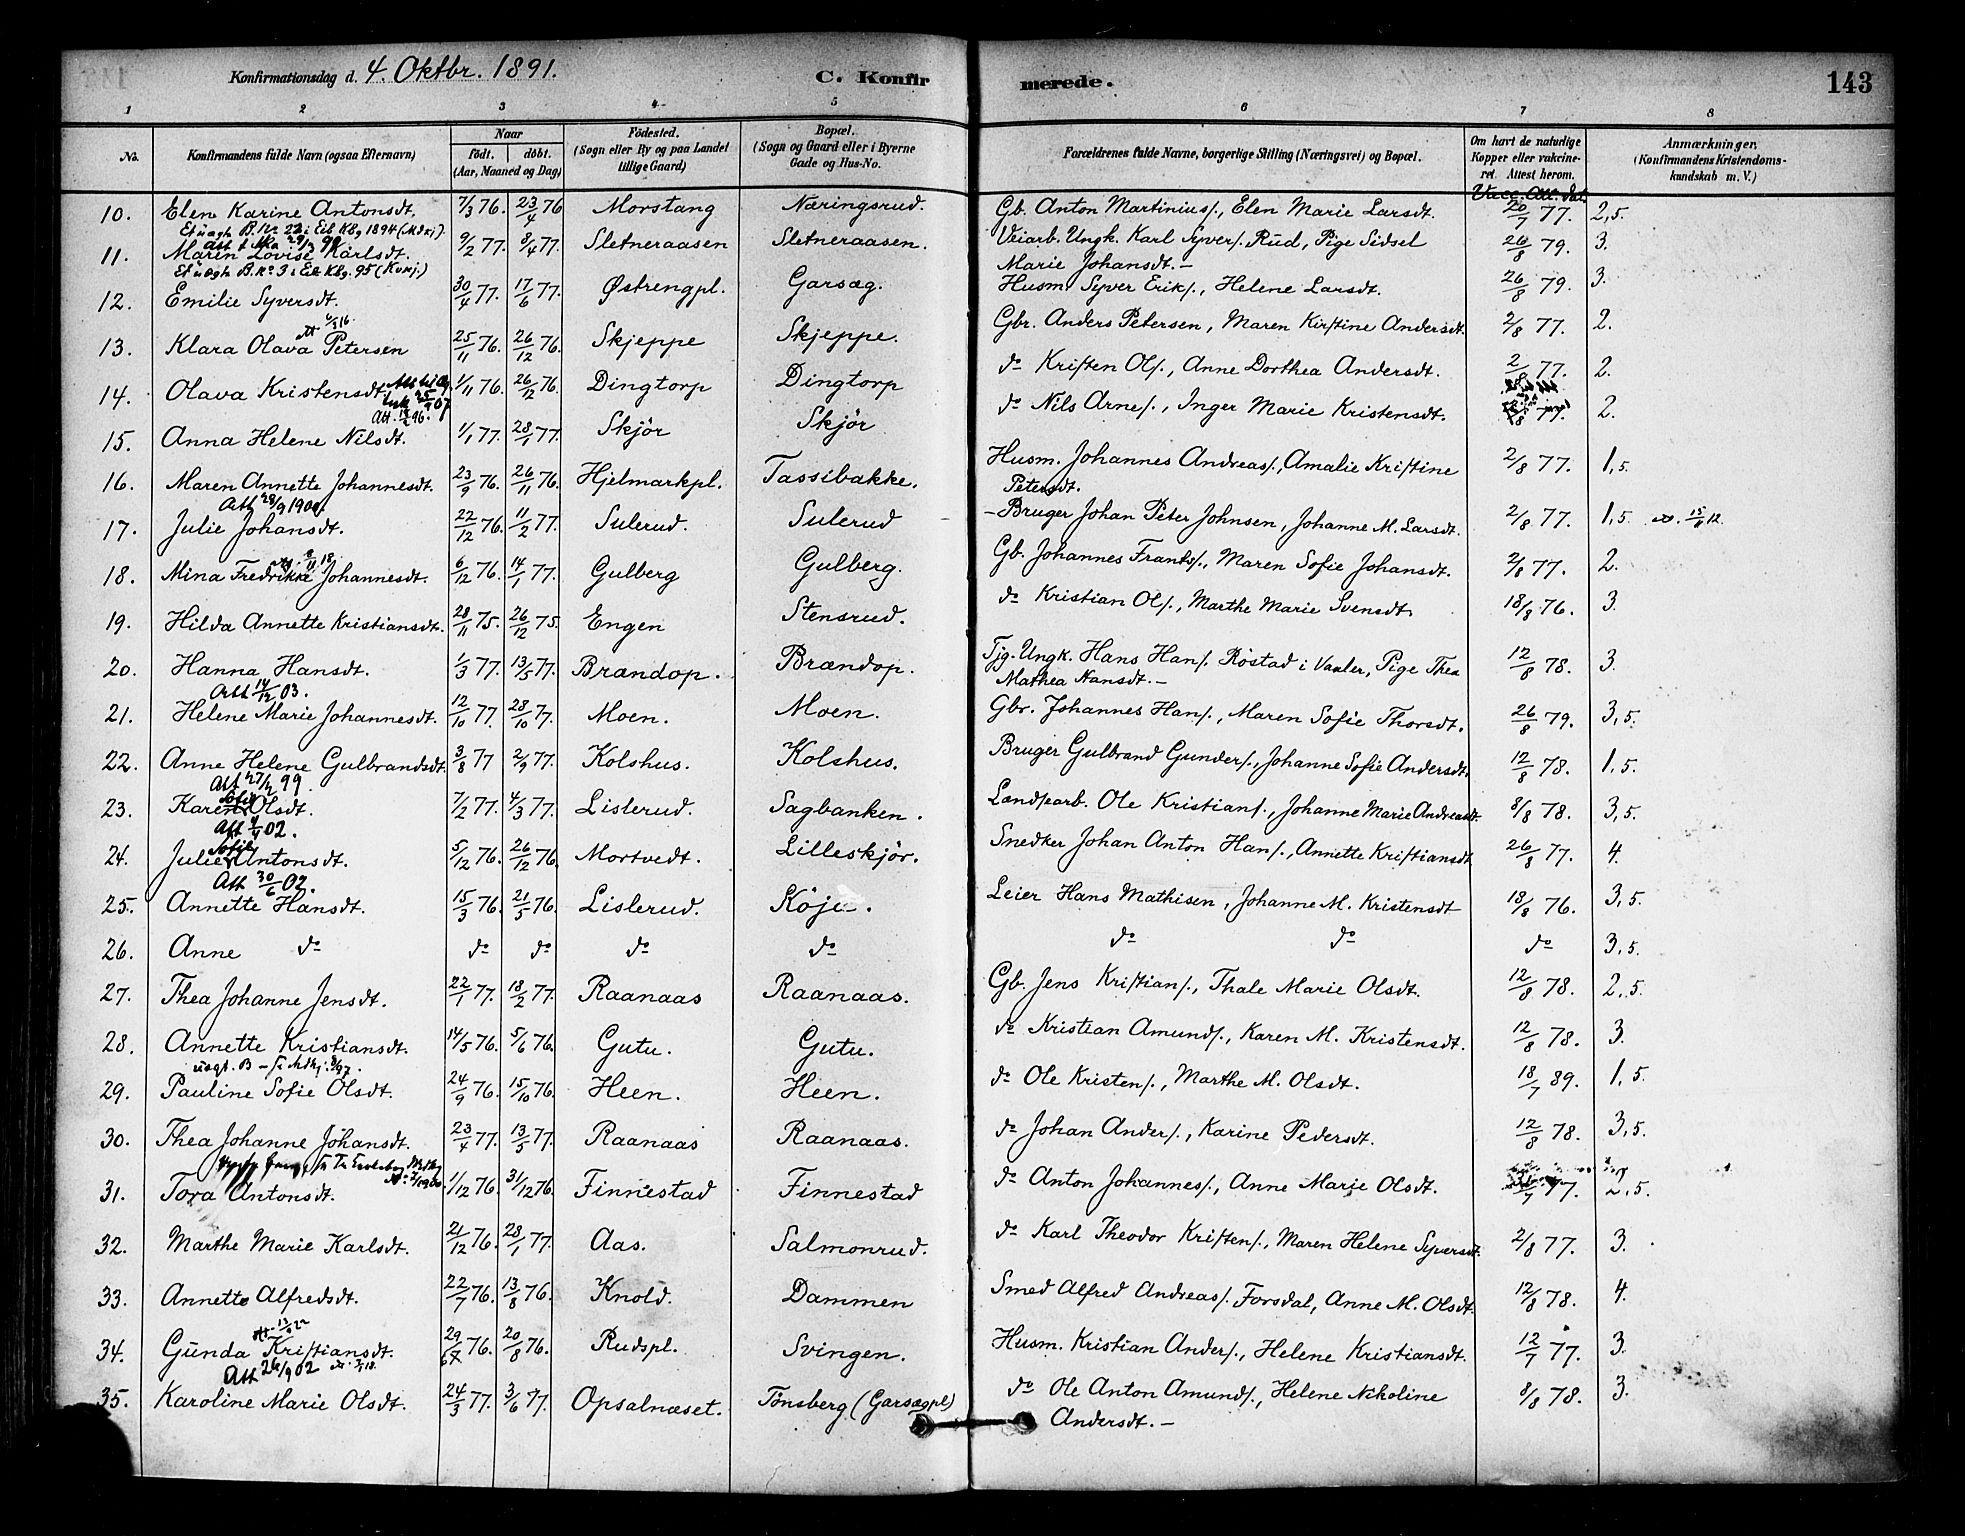 Konfirmationsdag d. 4. Oktbr. 1891. C. Konfirmerede. 143
1 2 3 4 5 6 7 8
No. Konfirmandens fulde Navn (ogsaa Efternavn) Naar født. døbt. (Aar, Maaned og Dag) Födested. (Sogn eller By og paa Landet tillige Gaard) Bopæl. (Sogn og Gaard eller i Byerne Gade og Hus-No. Forældrenes fulde Navne, borgerlige Stilling (Næringsvei) og Bopæl. Om havt de naturlige Kopper eller vakcineret. Attest herom. Anmærkninger. (Konfirmandens Kristendomskundskab m. V.)
Vacc. Att. dat.
10. Elen Karine Antonsdt. 7/3 76. 23/4 76 Morstang Næringsrud. Gb. Anton Martinius/., Elen Marie Larsdt. 20/7 77. 2,5.
Et uægh B. No 22 i Eib Kbg 1894 (Mdkj).
11. Maren Lovise Karlsdt. 9/2 77. 8/4 77. Sletneraasen Sletneraasen. Veiarb. Ungk. Karl Syver/. Rud, Pige Sidsel Marie Johansdt. – 26/8 79. 3.
Et uægh B. No 3 i Eib Kbg. 95 (Kvkj.)
12. Emilie Syversdt. 30/4 77. 17/6 77. Østrengpl. Garsæg. Husm. Syver Erik/., Helene Larsdt. 26/8 79. 3.
13. Klara Olava Petersen 25/11 76. 26/12 76. Skjeppe Skjeppe. Gbr. Anders Petersen, Maren Kirstine Andersdt. 2/8 77. 2.
14. Olava Kristensdt. 1/11 76. 26/12 76. Dingtorp Dingtorp do Kristen Ol/., Anne Dorthea Andersdt. 2/8 77. 2.
Att. 14/2 96.
15. Anna Helene Nilsdt. 1/1 77. 28/1 77. Skjør Skjør do Nils Arne/., Inger Marie Kristensdt. 77. 2.
16. Maren Annette Johannesdt. 23/9 76. 26/11 76. Hjelmarkpl. Tassibakke. Husm. Johannes Andreas/., Amalie Kristine Petersdt. 2/8 77. 1,5.
Att 28/9 1900.
17. Julie Johansdt. 22/12 76. 11/2 77. Sulerud. Sulerud – Bruger Johan Peter Johnsen, Johanne M. Larsdt. 2/8 77. 1,5.
18. Mina Fredrikke Johannesdt. 6/12 76. 14/1 77. Gulberg Gulberg. Gb. Johannes Frants/., Maren Sofie Johansdt. 2/8 77. 2.
19. Hilda Annette Kristiansdt. 28/11 75. 26/12 75. Engen Stensrud. do Kristian Ol/., Marthe Marie Svensdt. 18/8 76. 3.
20. Hanna Hansdt. 1/3 77. 13/5 77. Brændop. Brændop. Tjg. Ungk. Hans Han/. Röstad i Vaaler, Pige Thea Mathea Hansdt. – 12/8 78. 3.
Att 14/12 03.
21. Helene Marie Johannesdt. 12/10 77. 28/10 77. Moen. Moen. Gbr. Johannes Han/., Maren Sofie Thorsdt. 26/8 79. 3,5.
22. Anne Helene Gulbrandsdt. 3/8 77 2/9 77. Kolshus. Kolshus. Bruger Gulbrand Gunder/., Johanne Sofie Andersdt. 12/8 78. 1,5.
Att 27/2 99.
23. Karen Sofie Olsdt. 7/2 77. 4/3 77. Lislerud. Sagbanken. Landsarb. Ole Kristian/., Johanne Marie Andreasdt. 8/8 78. 3,5.
24. Julie Sofie Antonsdt. 5/12 76. 26/12 76. Mortvedt. Lilleskjör. Snedker Johan Anton Han/., Annette Kristiansdt 26/8 77. 4.
Att 30/6 02.
25. Annette Hansdt. 15/3 76. 21/5 76. Lislerud. Köje. Leier Hans Mathisen, Johanne M. Kristensdt 18/8 76. 3,5.
26. Anne do do do do do do do do 3,5.
27. Thea Johanne Jensdt. 22/1 77. 18/2 77. Raanaas Raanaas. Gb. Jens Kristian/., Thale Marie Olsdt. 12/8 78. 2,5.
28. Annette Kristiansdt. 14/5 76. 5/6 76. Gutu. Gutu. do Kristian Amund/., Karen M. Kristensdt. 12/8 78. 3.
29. Pauline Sofie Olsdt. 24/9 76. 15/10 76. Heen. Heen. do Ole Kristen/., Marthe M. Olsdt. 18/7 89. 1,5.
30. Thea Johanne Johansdt. 23/4 77. 13/5 77. Raanaas Raanaas. do Johan Ander/., Karine Pedersdt. 12/8 78. 3,5.
31. Tora Antonsdt. 1/12 76. 31/12 76. Finnestad Finnestad do Anton Johannes/., Anne Marie Olsdt. 77. 2,5.
32. Marthe Marie Karlsdt. 21/12 76. 28/1 77. Aas. Salmonrud. do Karl Theodor Kristen/., Maren Helene Syversdt. 2/8 77. 3.
33. Annette Alfredsdt. 22/7 76. 13/8 76. Knold. Dammen Smed Alfred Andreas/. Forsdal, Anne M. Olsdt. 12/8 78. 4.
34. Gunda Kristiansdt. 29/6 76. 20/8 76. Rudspl. Svingen. Husm. Kristian Ander/., Helene Kristiansdt. 12/7 77. 3.
Att 26/9 02
35. Karoline Marie Olsdt. 24/3 77. 3/6 77. Opsalnæset. Tönsberg (Garsægpl) do Ole Anton Amund/., Helene Nikoline Andersdt. – 8/8 78. 3.